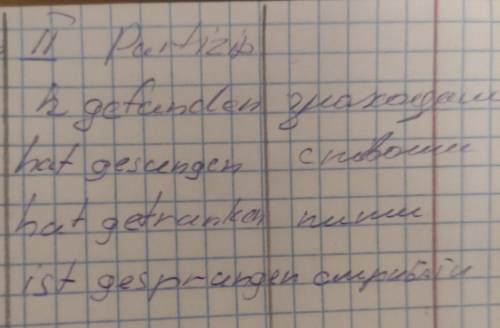 II Partizip
h gefunden знаходити
hat gesungen співати
hat getrunken пити
ist gesprungen стрибати